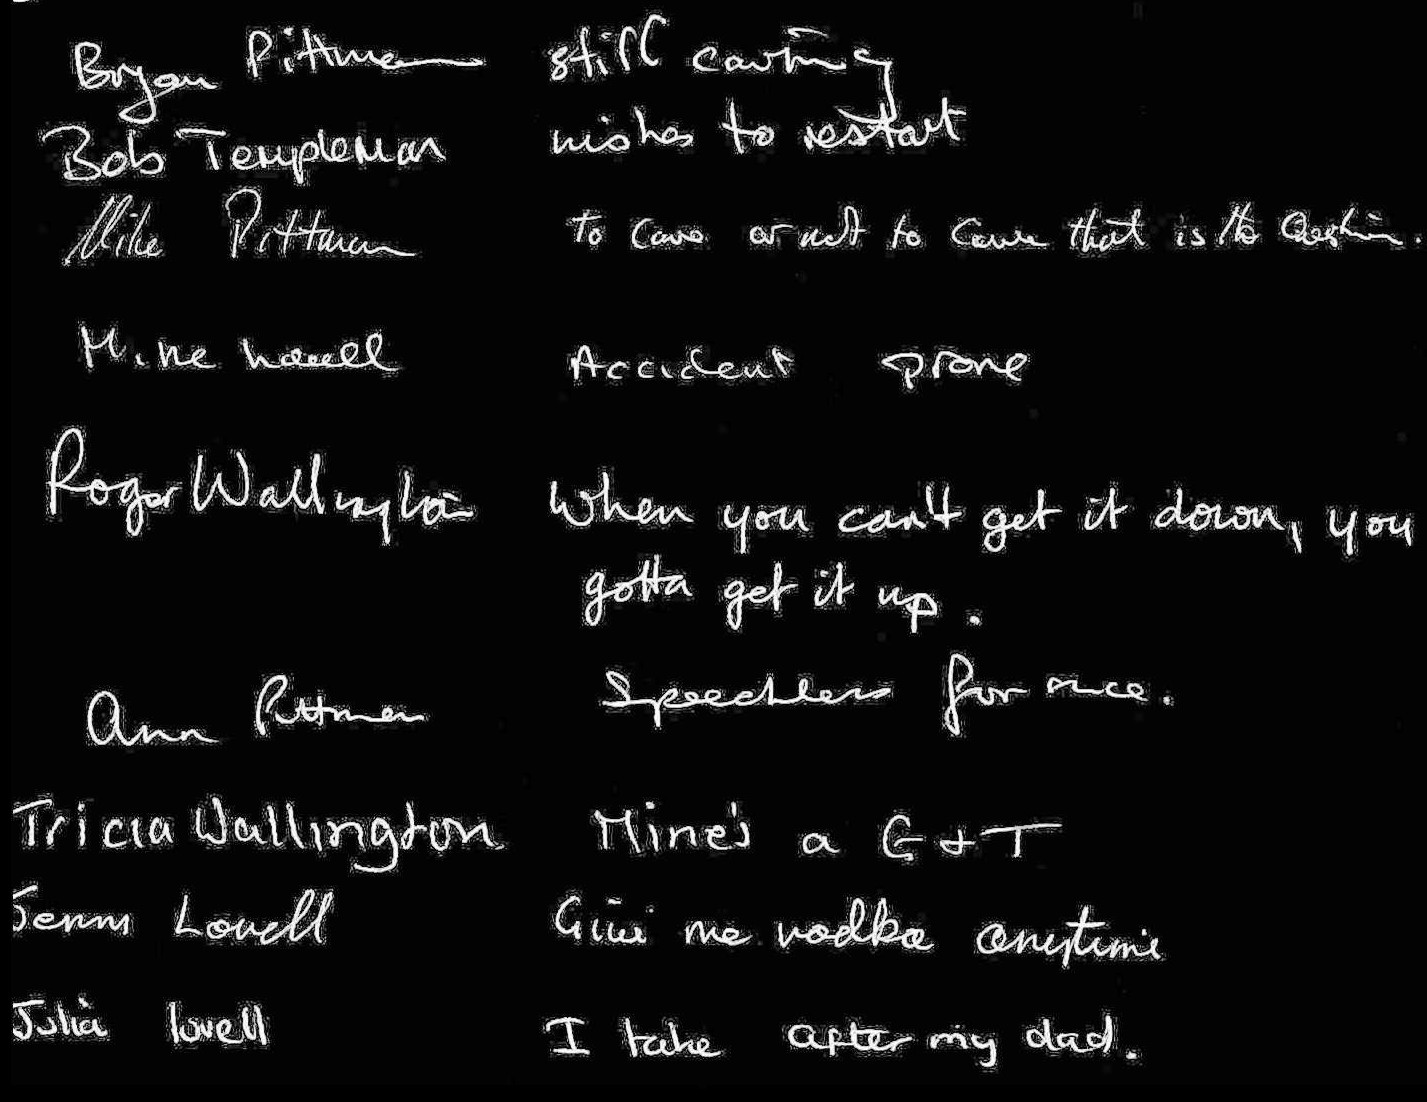 Bryan Pittman still caving
Bob Templeman wishes to restart
Mike Pittman To Cave or not to Cave that is the Question.
Mike Lovell Accident prone
Roger Wallington When you can't get it down, you
gotta get it up.
Ann Pittman Speechless for once.
Tricia Wallington Mine's a G & T
Jenny Lovell Give me vodka anytime
Julia lovell I take after my dad.